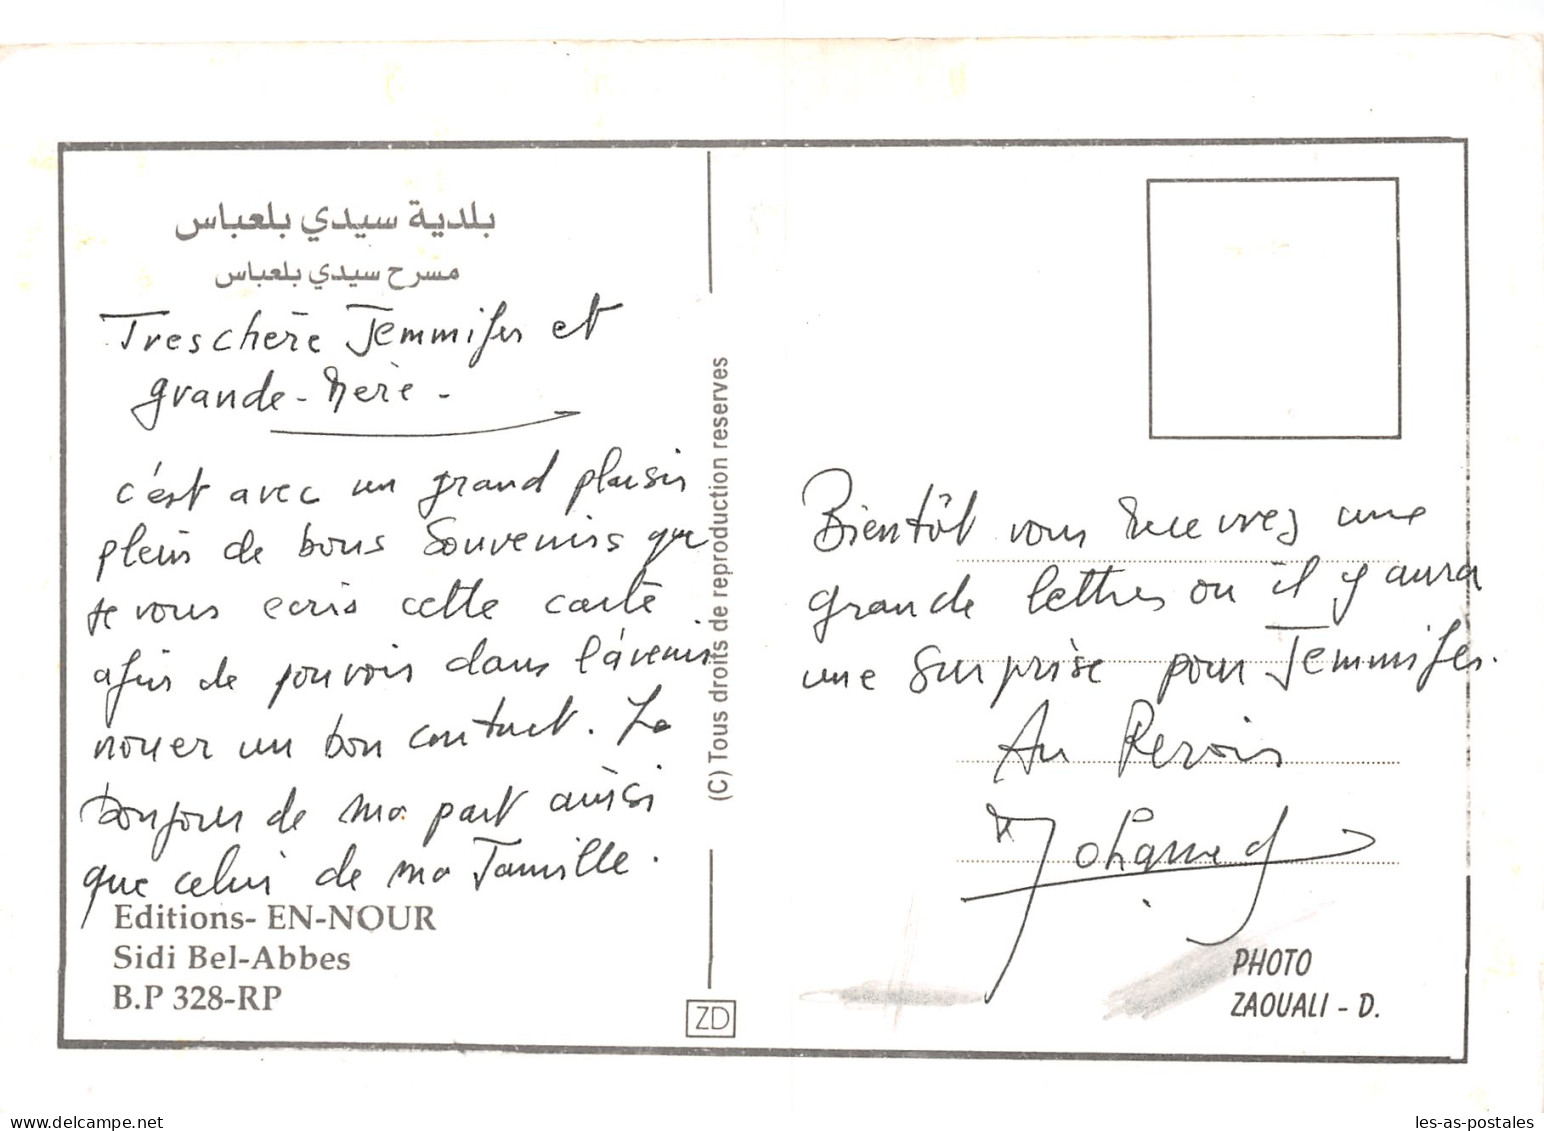 بلدية سيدي بلعباس
مسرح سيدي بلعباس
Tres chère Jennifer et
grande-Mère -
c'est avec un grand plaisir
plein de bons souvenirs que
je vous ecris cette carte
afin de pouvoir dans l'avenir
nouer un bon contact. Le
bonjour de ma part ainsi
que celui de ma Famille.
Editions- EN-NOUR
Sidi Bel-Abbes
B.P 328-RP
(C) Tous droits de reproduction reserves
ZD
Bientôt vous recevrez une
grande lettres ou il y aura
une surprise pour Jennifer.
Au Revoir
Mohamed
PHOTO
ZAOUALI - D.
les-as-postales